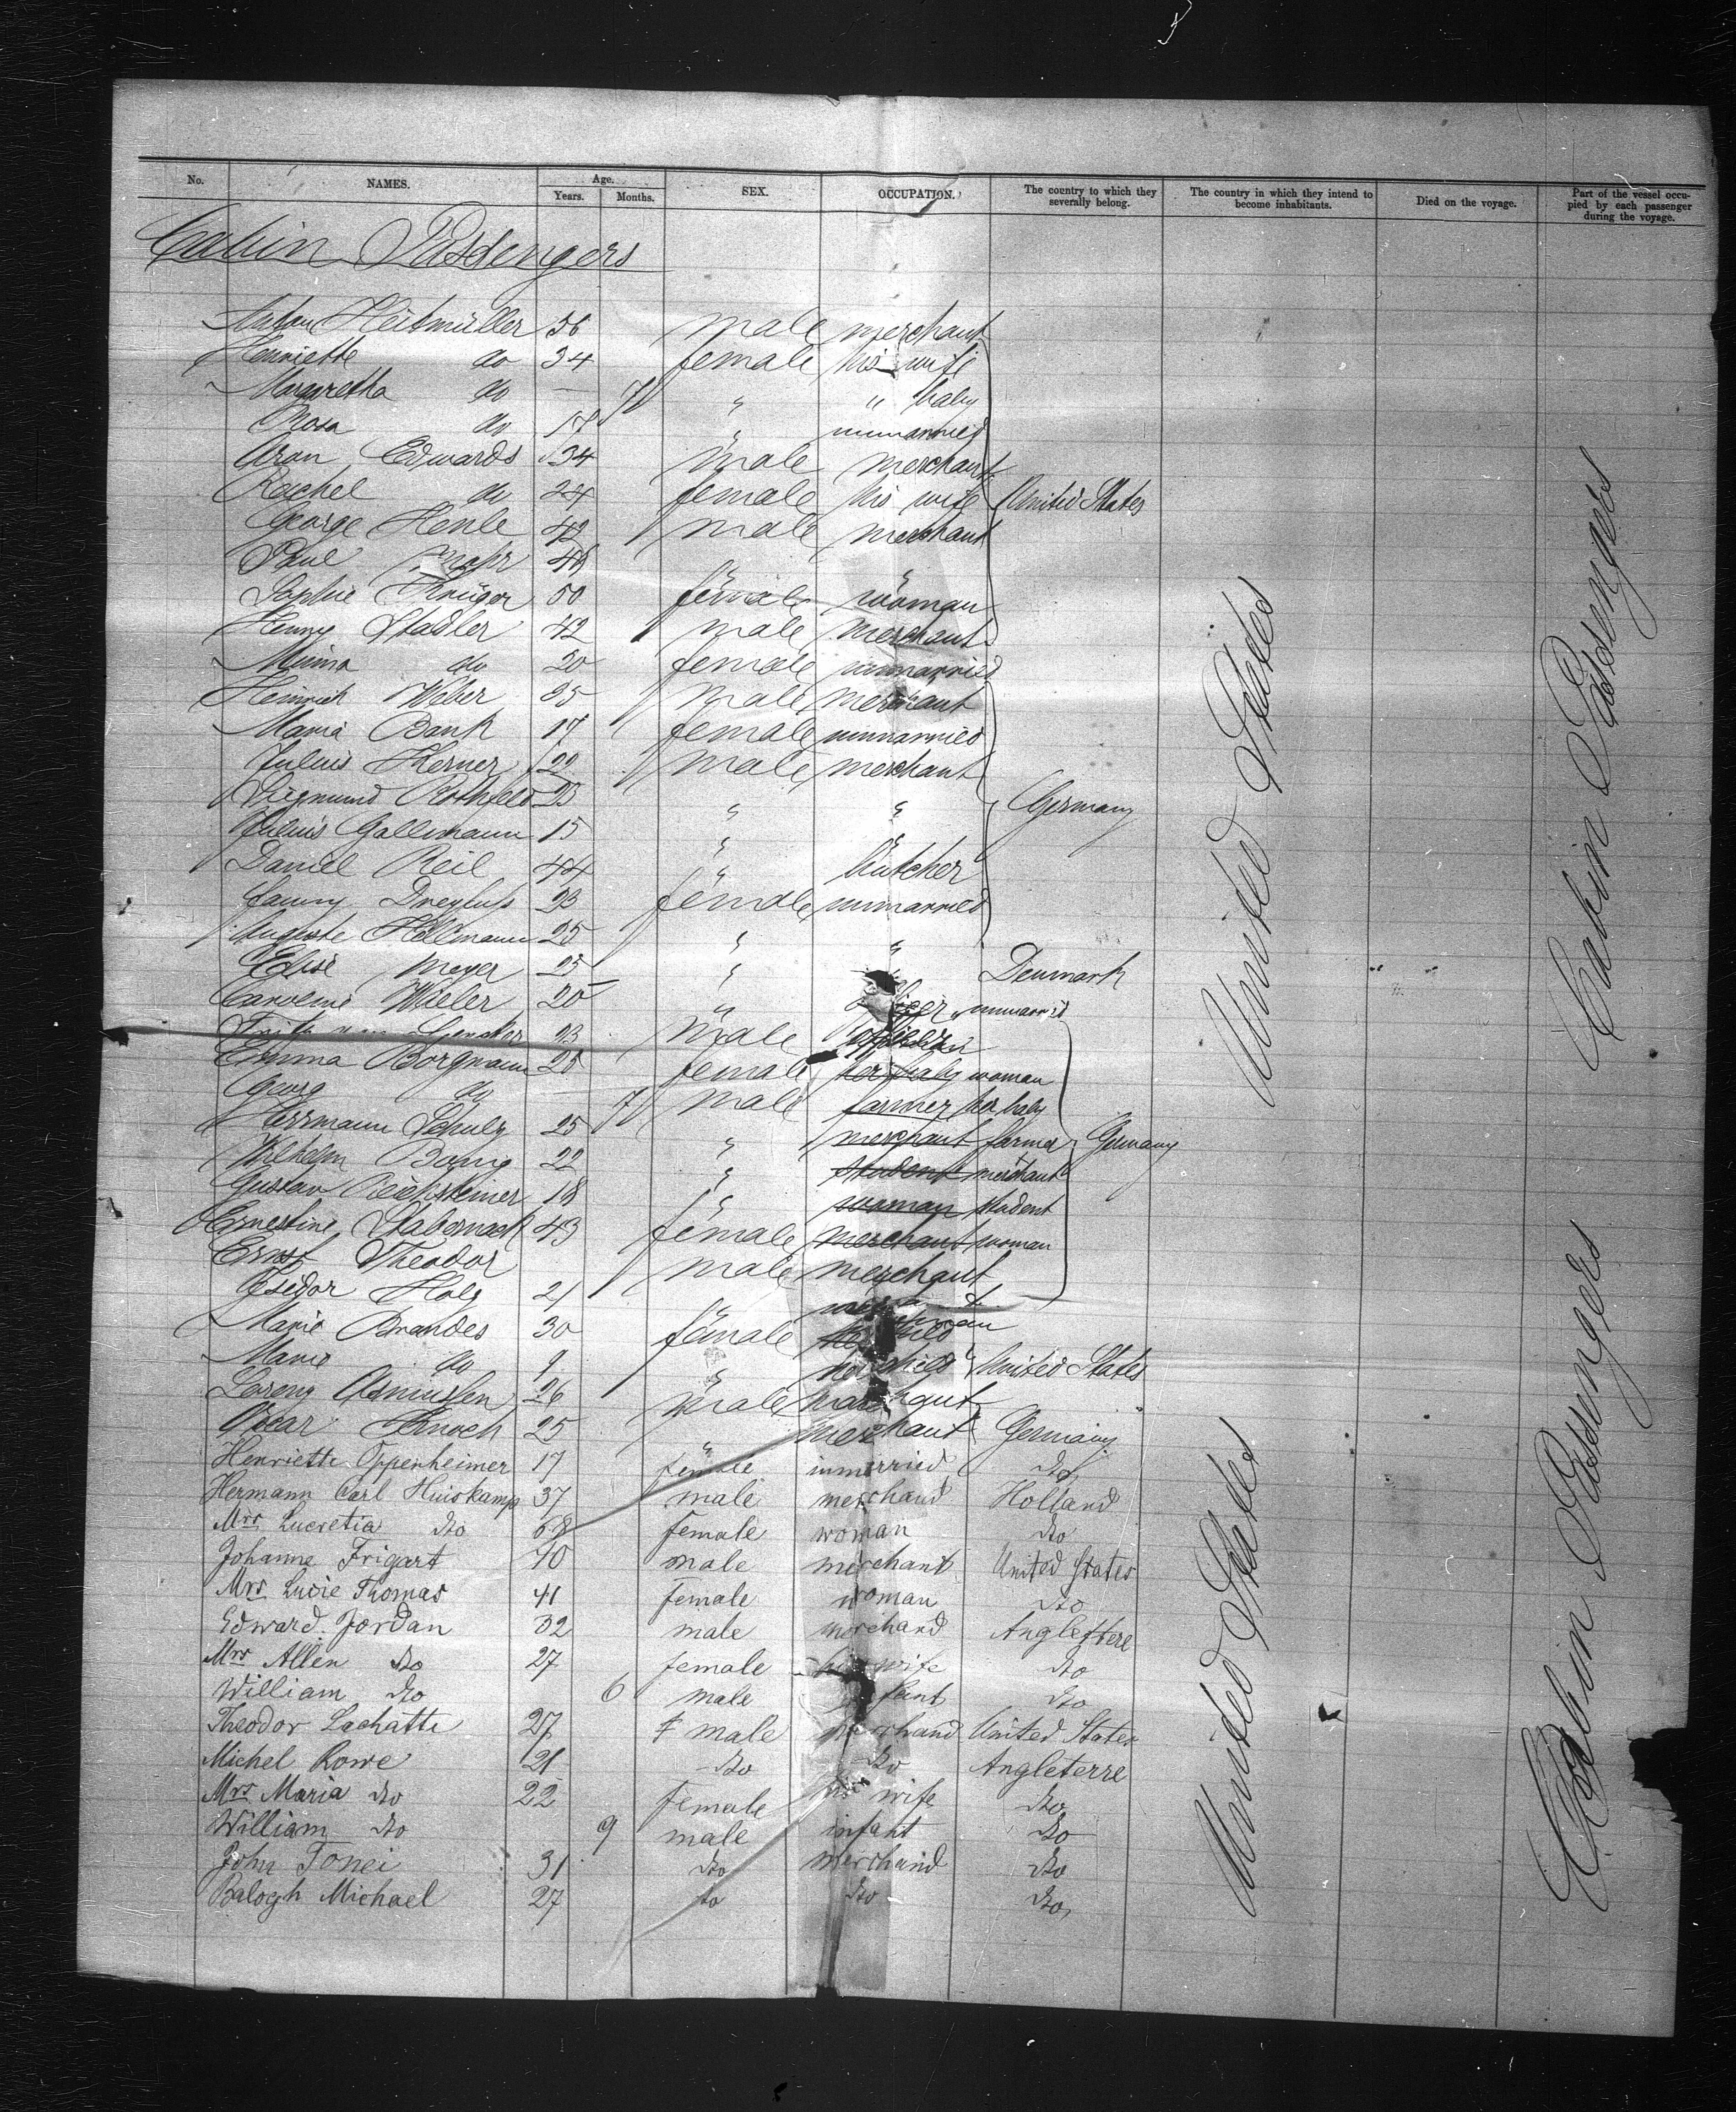 No. NAMES. Age. Years. Months. SEX. OCCUPATION. The country to which they severally belong. The country in which they intend to become inhabitants. Died on the voyage. Part of the vessel occupied by each passenger during the voyage.
Cabin Passengers
Heitmüller 36 male merchant
Henriette do 34 female his wife
Margaretha do — 7 " " baby
Rosa do 17 " unmarried
Aron Edwards 34 male merchant
Rachel do 24 female his wife United States
George Henle 42 male merchant
Paul " "
Sophie Krüger 50 female woman
Henry Stadler 42 male merchant
Minna do 20 female unmarried
Heinrich Weber 25 male merchant
Maria Bank 17 female unmarried
Julius Kerner 22 male merchant
Siegmund Rothfeld " " Germany
Julius Gallmann 15 " "
Daniel Reil 44 " butcher
Fanny Dreyfuss 23 female unmarried
Auguste Hellmann 25 " "
Elise Meyer 25 " " Denmark
Caroline Wieler 20 " unmarried
23 male
Emma Borgmann 25 female her baby woman
Georg do — 7 male farmer her baby
Herrmann Schulz 25 " merchant farmer Germany
Wilhelm 22 " student merchant
Gustav Reichsteiner 18 " woman student
Ernestine 43 female merchant woman
Ernst Theodor male merchant
Isedor 21 "
Marie Brandes 30 female
Marie do 9 " her child United States
Lorenz 26 male merchant
Oscar Knoch 25 " merchant Germany
Henriette Oppenheimer 17 female unmerried do
Hermann Carl Huiskamp 37 male merchand Holland
Mrs Lucretia do 68 female woman do
Johanne Frigart 40 male merchant United States
Mrs Lucie Thomas 41 female woman do
Edward Jordan 32 male merchand Anglettere
Mrs Allen do 27 female his wife do
William do 6 male do
Theodor Lachatte 27 male merchand United States
Michel Rowe 21 do do Angleterre
Mrs Maria do 22 female his wife do
William do 9 male infant do
John Tonei 31 do merchand do
Balogh Michael 27 do do do
United States
United States
Cabin Passengers
Cabin Passengers